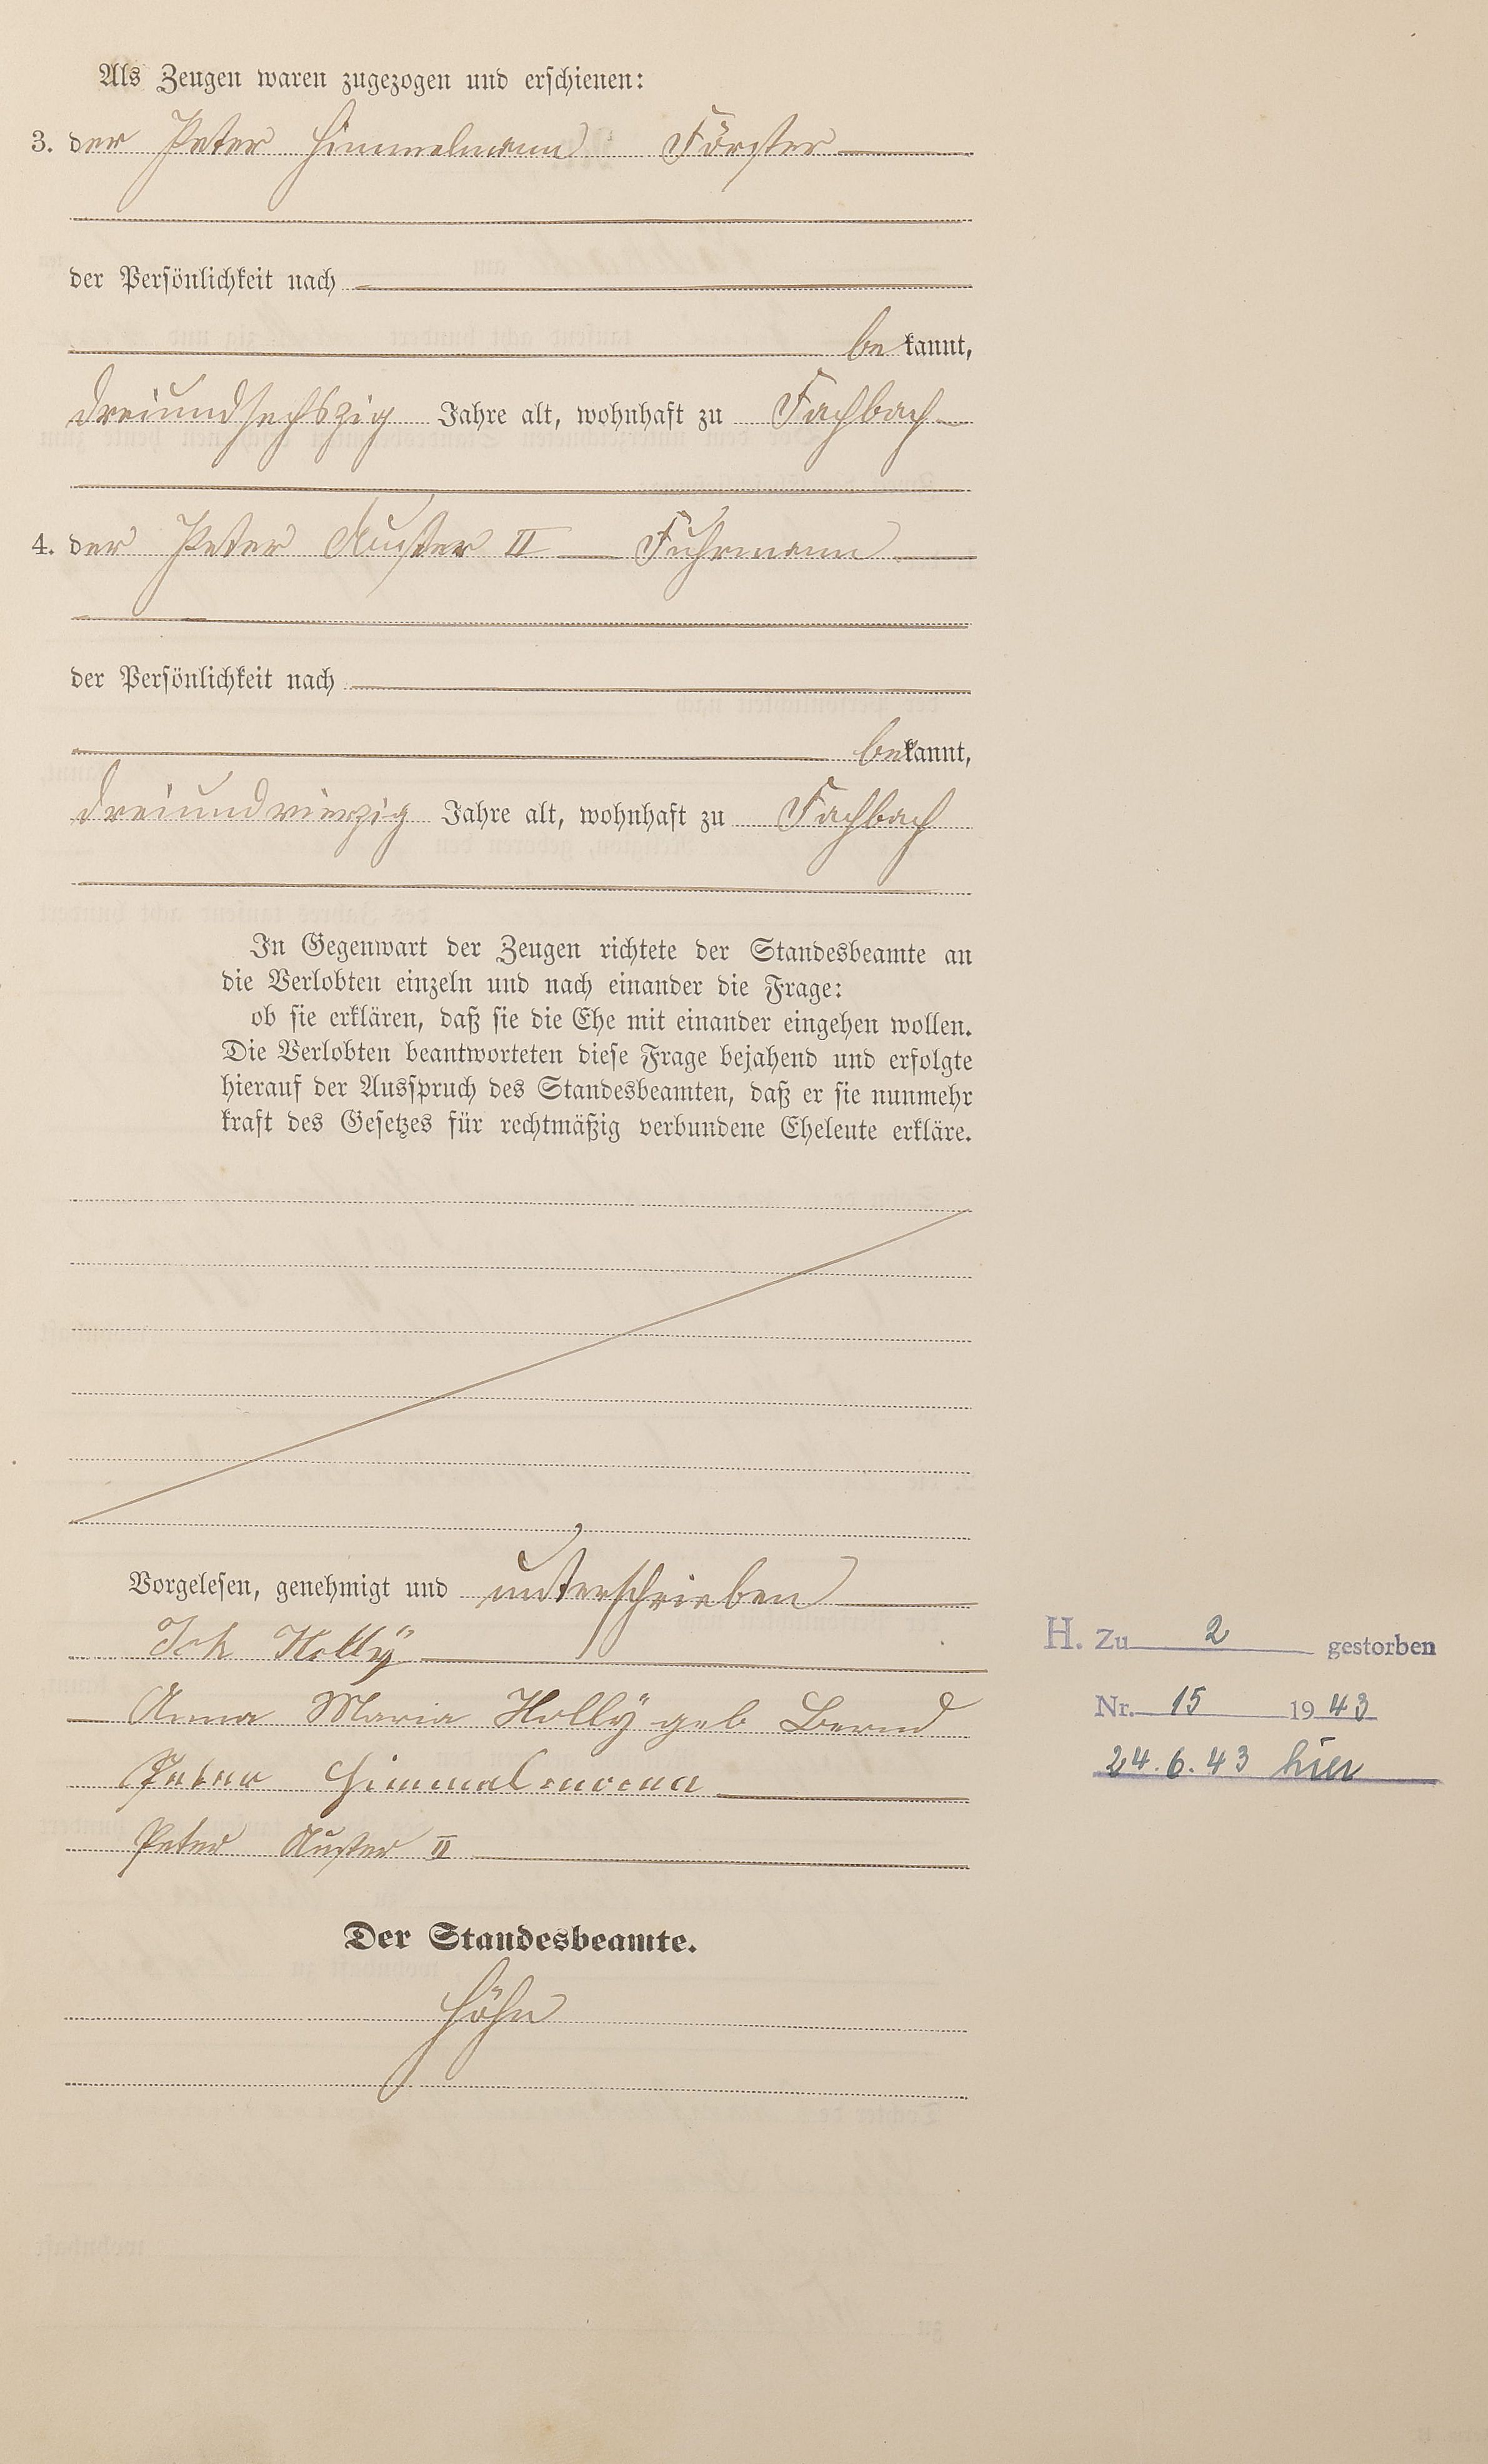 Als Zeugen waren zugezogen und erschienen:
3. der Peter Himmelmann Förster
der Persönlichkeit nach
bekannt,
dreiundsechszig Jahre alt, wohnhaft zu Fachbach
4. der Peter Auster II Fuhrmann
der Persönlichkeit nach
bekannt,
dreiundvierzig Jahre alt, wohnhaft zu Fachbach
In Gegenwart der Zeugen richtete der Standesbeamte an
die Verlobten einzeln und nach einander die Frage:
ob sie erklären, daß sie die Ehe mit einander eingehen wollen.
Die Verlobten beantworteten diese Frage bejahend und erfolgte
hierauf der Ausspruch des Standesbeamten, daß er sie nunmehr
kraft des Gesetzes für rechtmäßig verbundene Eheleute erkläre.
Vorgelesen, genehmigt und unterschrieben
Joh Hollÿ
Anna Maria Hollÿ geb Bernd
Peter Himmelmann
Peter Auster II
Der Standesbeamte.
Höhn
H. Zu 2 gestorben
Nr. 15 1943
24.6.43 hier